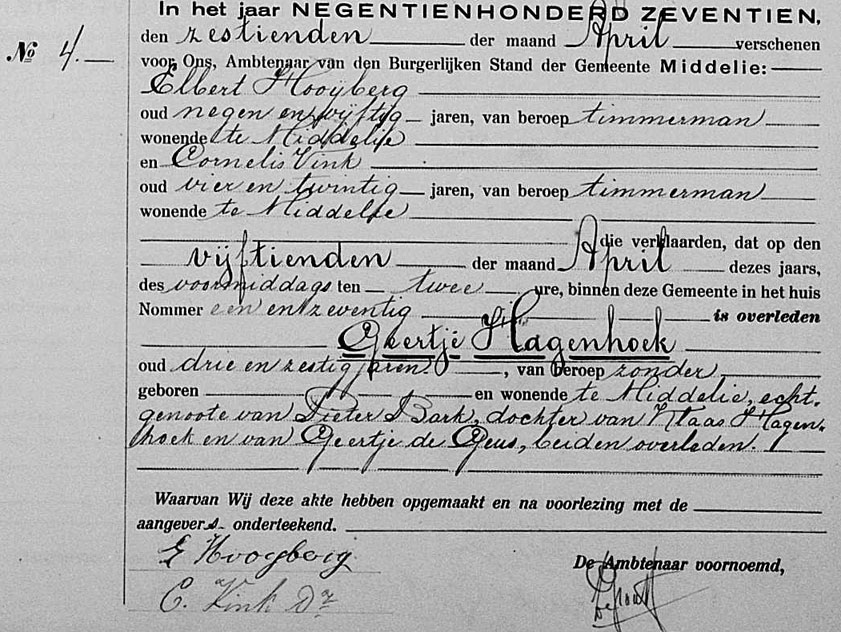 In het jaar NEGENTIENHONDERD ZEVENTIEN,
Nº 4. den zestienden der maand April verschenen
voor Ons, Ambtenaar van den Burgerlijken Stand der Gemeente Middelie:
Elbert Hooyberg
oud negen en vijftig jaren, van beroep timmerman
wonende te Middelie
en Cornelis Vink
oud vier en twintig jaren, van beroep timmerman
wonende te Middelie
die verklaarden, dat op den
vijftienden der maand April dezes jaars,
des voormiddags ten twee ure, binnen deze Gemeente in het huis
Nommer een en zeventig is overleden
Geertje Hagenhoek
oud drie en zestig jaren, van beroep zonder,
geboren en wonende te Middelie, echt-
genoote van Pieter Bark, dochter van Klaas Hagen-
hoek en van Geertje de Geus, beiden overleden.
Waarvan Wij deze akte hebben opgemaakt en na voorlezing met de
aangevers onderteekend.
E Hooyberg
De Ambtenaar voornoemd,
C. Vink Dz